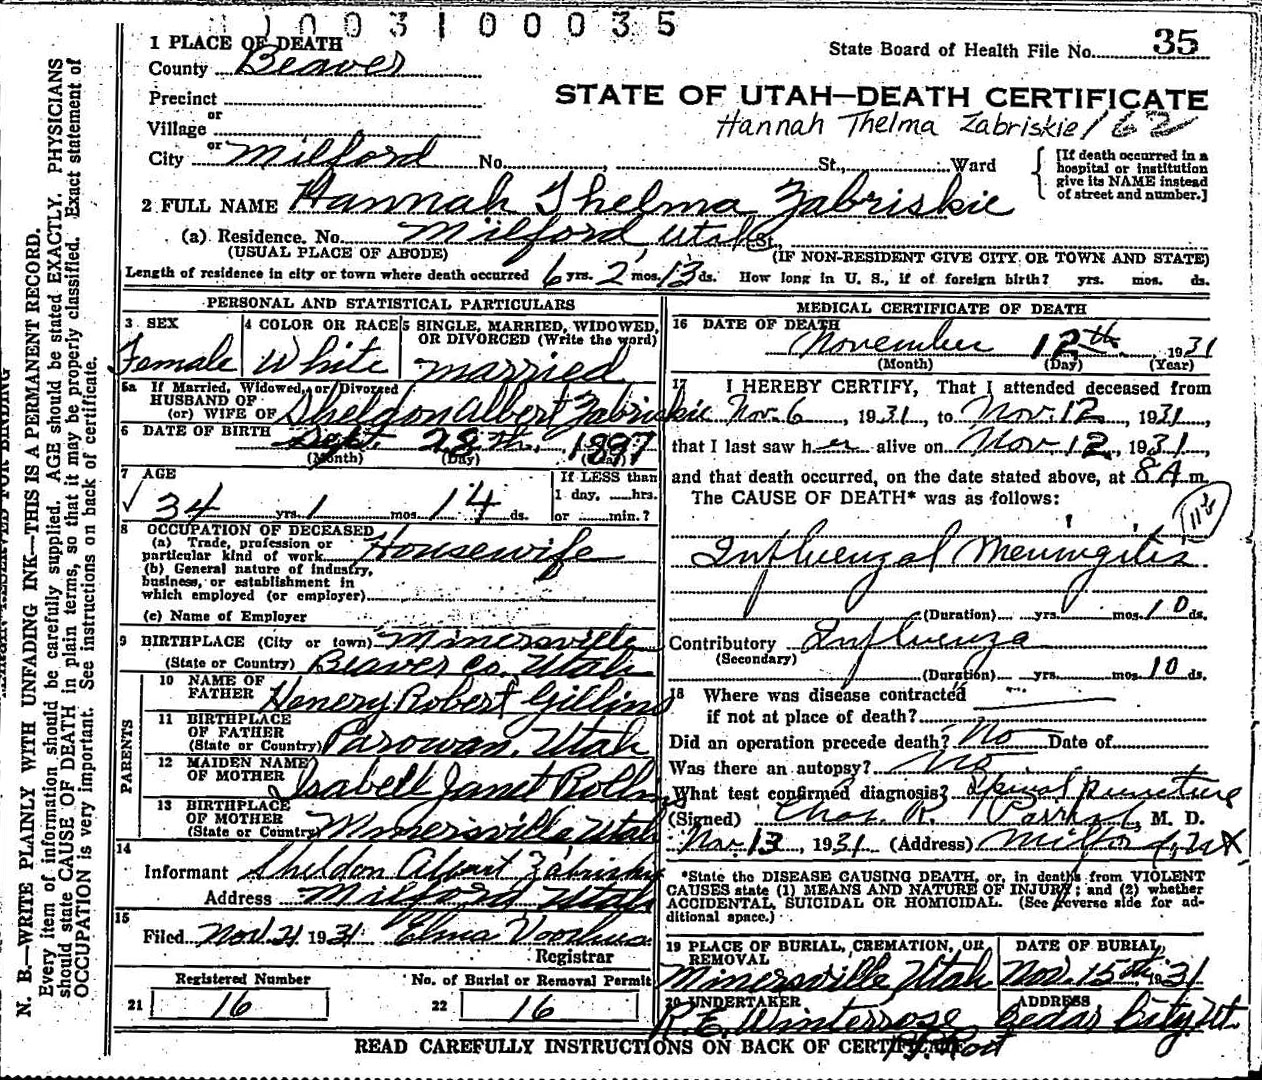 003100035
State Board of Health File No. 35
STATE OF UTAH—DEATH CERTIFICATE
Hannah Thelma Zabriskie / 62
1 PLACE OF DEATH
County Beaver
Precinct
or
Village
or
City Milford No. , St., Ward
[If death occurred in a
hospital or institution
give its NAME instead
of street and number.]
2 FULL NAME Hannah Thelma Zabriskie
(a) Residence. No. Milford Utah St.,
(USUAL PLACE OF ABODE) (IF NON-RESIDENT GIVE CITY OR TOWN AND STATE)
Length of residence in city or town where death occurred 6 yrs. 2 mos. 13 ds. How long in U. S., if of foreign birth? yrs. mos. ds.
PERSONAL AND STATISTICAL PARTICULARS
3 SEX
Female
4 COLOR OR RACE
White
5 SINGLE, MARRIED, WIDOWED,
OR DIVORCED (Write the word)
married
5a If Married, Widowed, or Divorced
HUSBAND OF
(or) WIFE OF Sheldon Albert Zabriskie
6 DATE OF BIRTH Sept. 28th, 1897
(Month) (Day) (Year)
7 AGE
34 yrs. 1 mos. 14 ds.
If LESS than
1 day, ......hrs.
or ........min.?
8 OCCUPATION OF DECEASED
(a) Trade, profession or
particular kind of work Housewife
(b) General nature of industry,
business, or establishment in
which employed (or employer)
(c) Name of Employer
9 BIRTHPLACE (City or town) Minersville
(State or Country) Beaver Co. Utah
PARENTS
10 NAME OF
FATHER Henery Robert Gillins
11 BIRTHPLACE
OF FATHER
(State or Country) Parowan, Utah
12 MAIDEN NAME
OF MOTHER Isabell Janet Rollins
13 BIRTHPLACE
OF MOTHER
(State or Country) Minersville Utah
14
Informant Sheldon Albert Zabriskie
Address Milford Utah
15
Filed Nov. 21 1931 Elma Voorhees
Registrar
Registered Number
21 16
No. of Burial or Removal Permit
22 16
MEDICAL CERTIFICATE OF DEATH
16 DATE OF DEATH
November 12th 1931
(Month) (Day) (Year)
17 I HEREBY CERTIFY, That I attended deceased from
Nov. 6, 1931, to Nov. 12, 1931,
that I last saw her alive on Nov 12, 1931,
and that death occurred, on the date stated above, at 8 A m.
The CAUSE OF DEATH* was as follows:
Influenzal Meningitis
(Duration) yrs. mos. 10 ds.
Contributory Influenza
(Secondary)
(Duration) yrs. mos. 10 ds.
18 Where was disease contracted
if not at place of death?
Did an operation precede death? No Date of
Was there an autopsy? No
What test confirmed diagnosis? Spinal puncture
(Signed) Chas. R. , M. D.
Nov. 13, 1931 (Address) Milford, Ut
*State the DISEASE CAUSING DEATH, or, in deaths from VIOLENT
CAUSES state (1) MEANS AND NATURE OF INJURY; and (2) whether
ACCIDENTAL, SUICIDAL OR HOMICIDAL. (See reverse side for ad-
ditional space.)
19 PLACE OF BURIAL, CREMATION, OR
REMOVAL
Minersville Utah
DATE OF BURIAL
Nov. 15th, 1931
20 UNDERTAKER
R. E. Winterrose
ADDRESS
Cedar City Ut.
READ CAREFULLY INSTRUCTIONS ON BACK OF CERTIFICATE
N. B.—WRITE PLAINLY WITH UNFADING INK—THIS IS A PERMANENT RECORD.
Every item of information should be carefully supplied. AGE should be stated EXACTLY. PHYSICIANS
should state CAUSE OF DEATH in plain terms, so that it may be properly classified. Exact statement of
OCCUPATION is very important. See instructions on back of certificate.